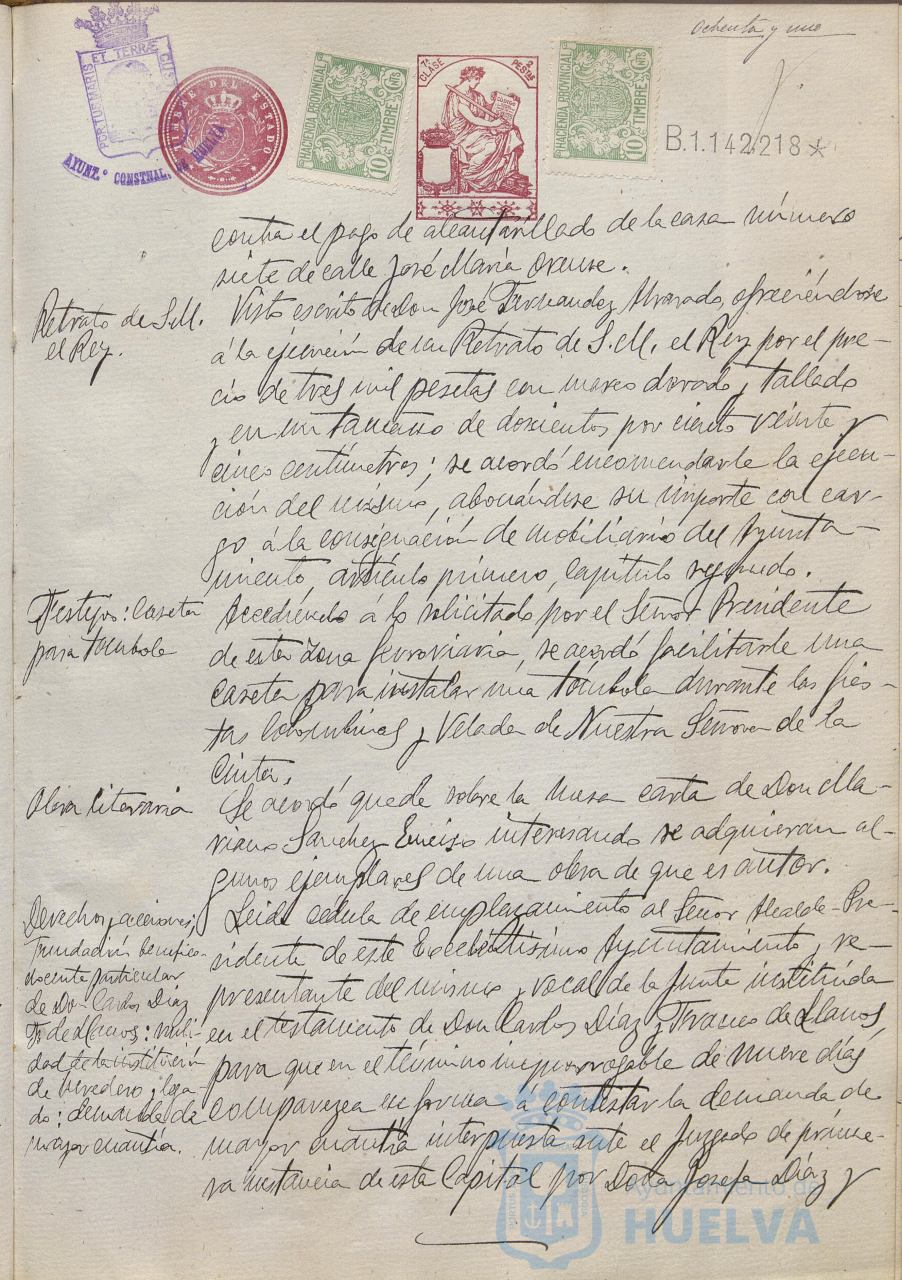 Ochenta y uno
PORTUS MARIS ET TERRAE CUSTODIA
AYUNT.º CONSTNAL. DE HUELVA
TIMBRE DEL ESTADO
HACIENDA PROVINCIAL
TIMBRE
10 CNTS
7ª CLASE
2 PESETAS
HACENDA PROVINCIAL
TIMBRE
10 CNTS
B.1.142.218*
contra el pago de alcantarillado de la casa número
siete de calle José María Orense.
Retrato de S.M.
el Rey.
Visto escrito de Don José Fernandez Alvarado, ofreciéndose
á la ejecución de un Retrato de S.M. el Rey por el pre-
cio de tres mil pesetas con marco dorado y tallado
y en un tamaño de doscientos por ciento veinte y
cinco centímetros; se acordó encomendarle la ejecu-
ción del mismo, abonándose su importe con car-
go á la consignación de mobiliario del Ayunta-
miento, artículo primero, capítulo segundo.
Festejos: Caseta
para tómbola
Accediendo á lo solicitado por el Señor Presidente
de esta Zona ferroviaria, se acordó facilitarle una
caseta para instalar una tómbola durante las fies-
tas Colombinas y Velada de Nuestra Señora de la
Cinta.
Obra literaria
Se acordó quede sobre la mesa carta de Don Ma-
riano Sanchez Enciso interesando se adquieran al-
gunos ejemplares de una obra de que es autor.
Derechos y acciones;
Fundación benéfico
docente particular
de Don Carlos Díaz
F. de Llanos: nuli-
dad de la institución
de heredero y lega-
do: demanda de
mayor cuantía.
Leida cédula de emplazamiento al Señor Alcalde-Pre-
sidente de este Excelentísimo Ayuntamiento, re-
presentante del mismo y vocal de la Junta instituida
en el testamento de Don Carlos Díaz y Franco de Llanos,
para que en el término improrrogable de nueve días
comparezca en forma á contestar la demanda de
mayor cuantía interpuesta ante el Juzgado de prime-
ra instancia de esta Capital por Doña Josefa Díaz y
Ayuntamiento de
HUELVA